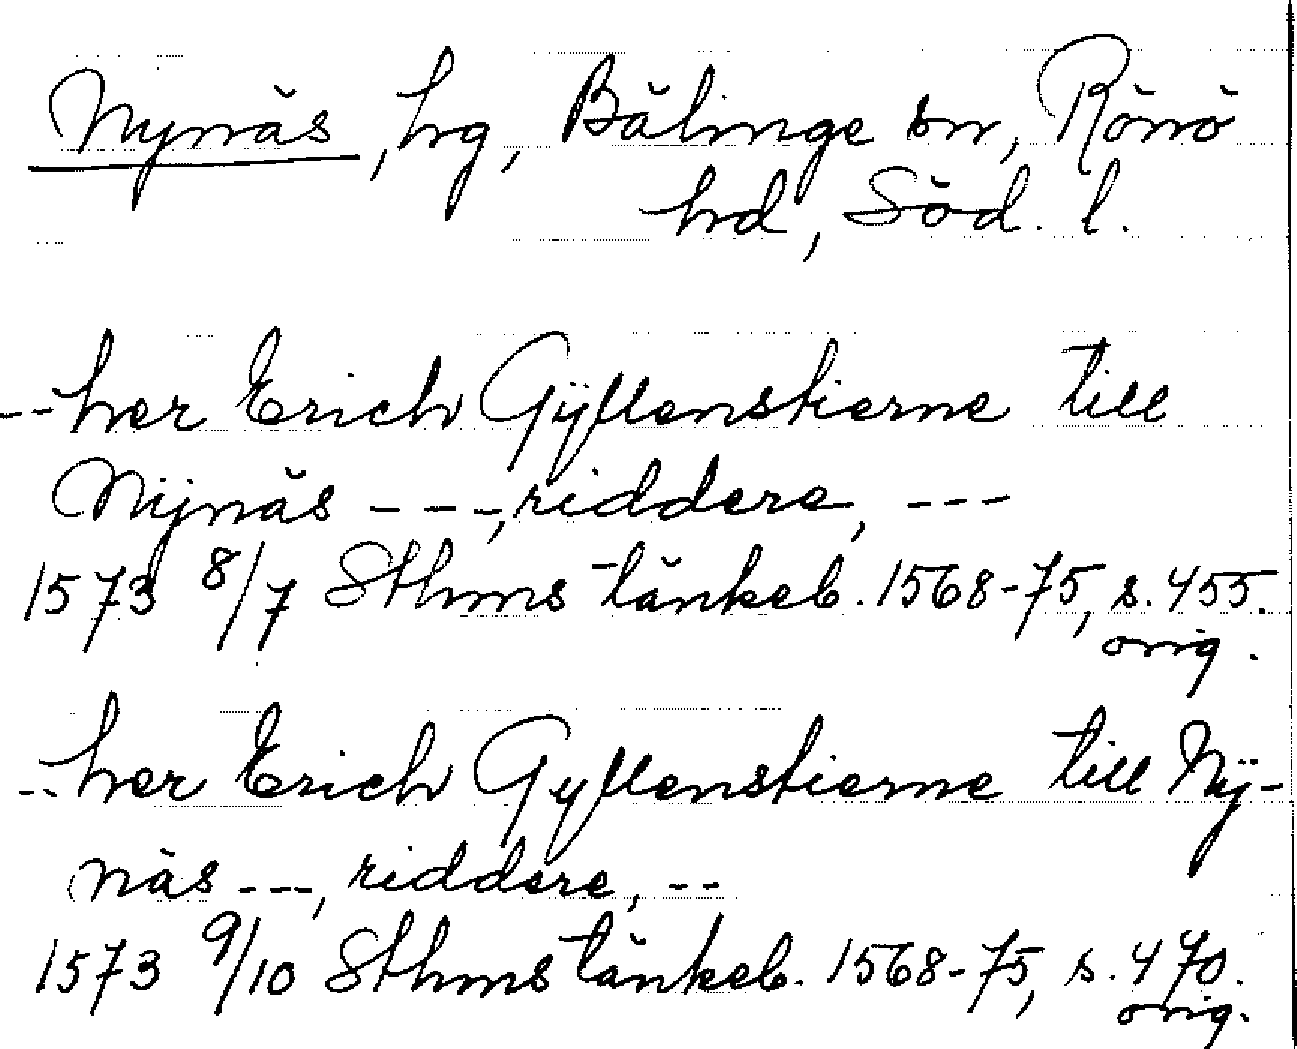 Nynäs, hg, Bälinge sn, Rönö
hd, Söd. l.
--her Erich Gÿllenstierne till
Nijnäs ---, riddere, ---
1573 8/7 Sthms tänkeb. 1568-75, s. 455.
orig.
--her Erich Gyllenstierne till Nÿ-
näs ---, riddere, --
1573 9/10 Sthms tänkeb. 1568-75, s. 470.
orig.